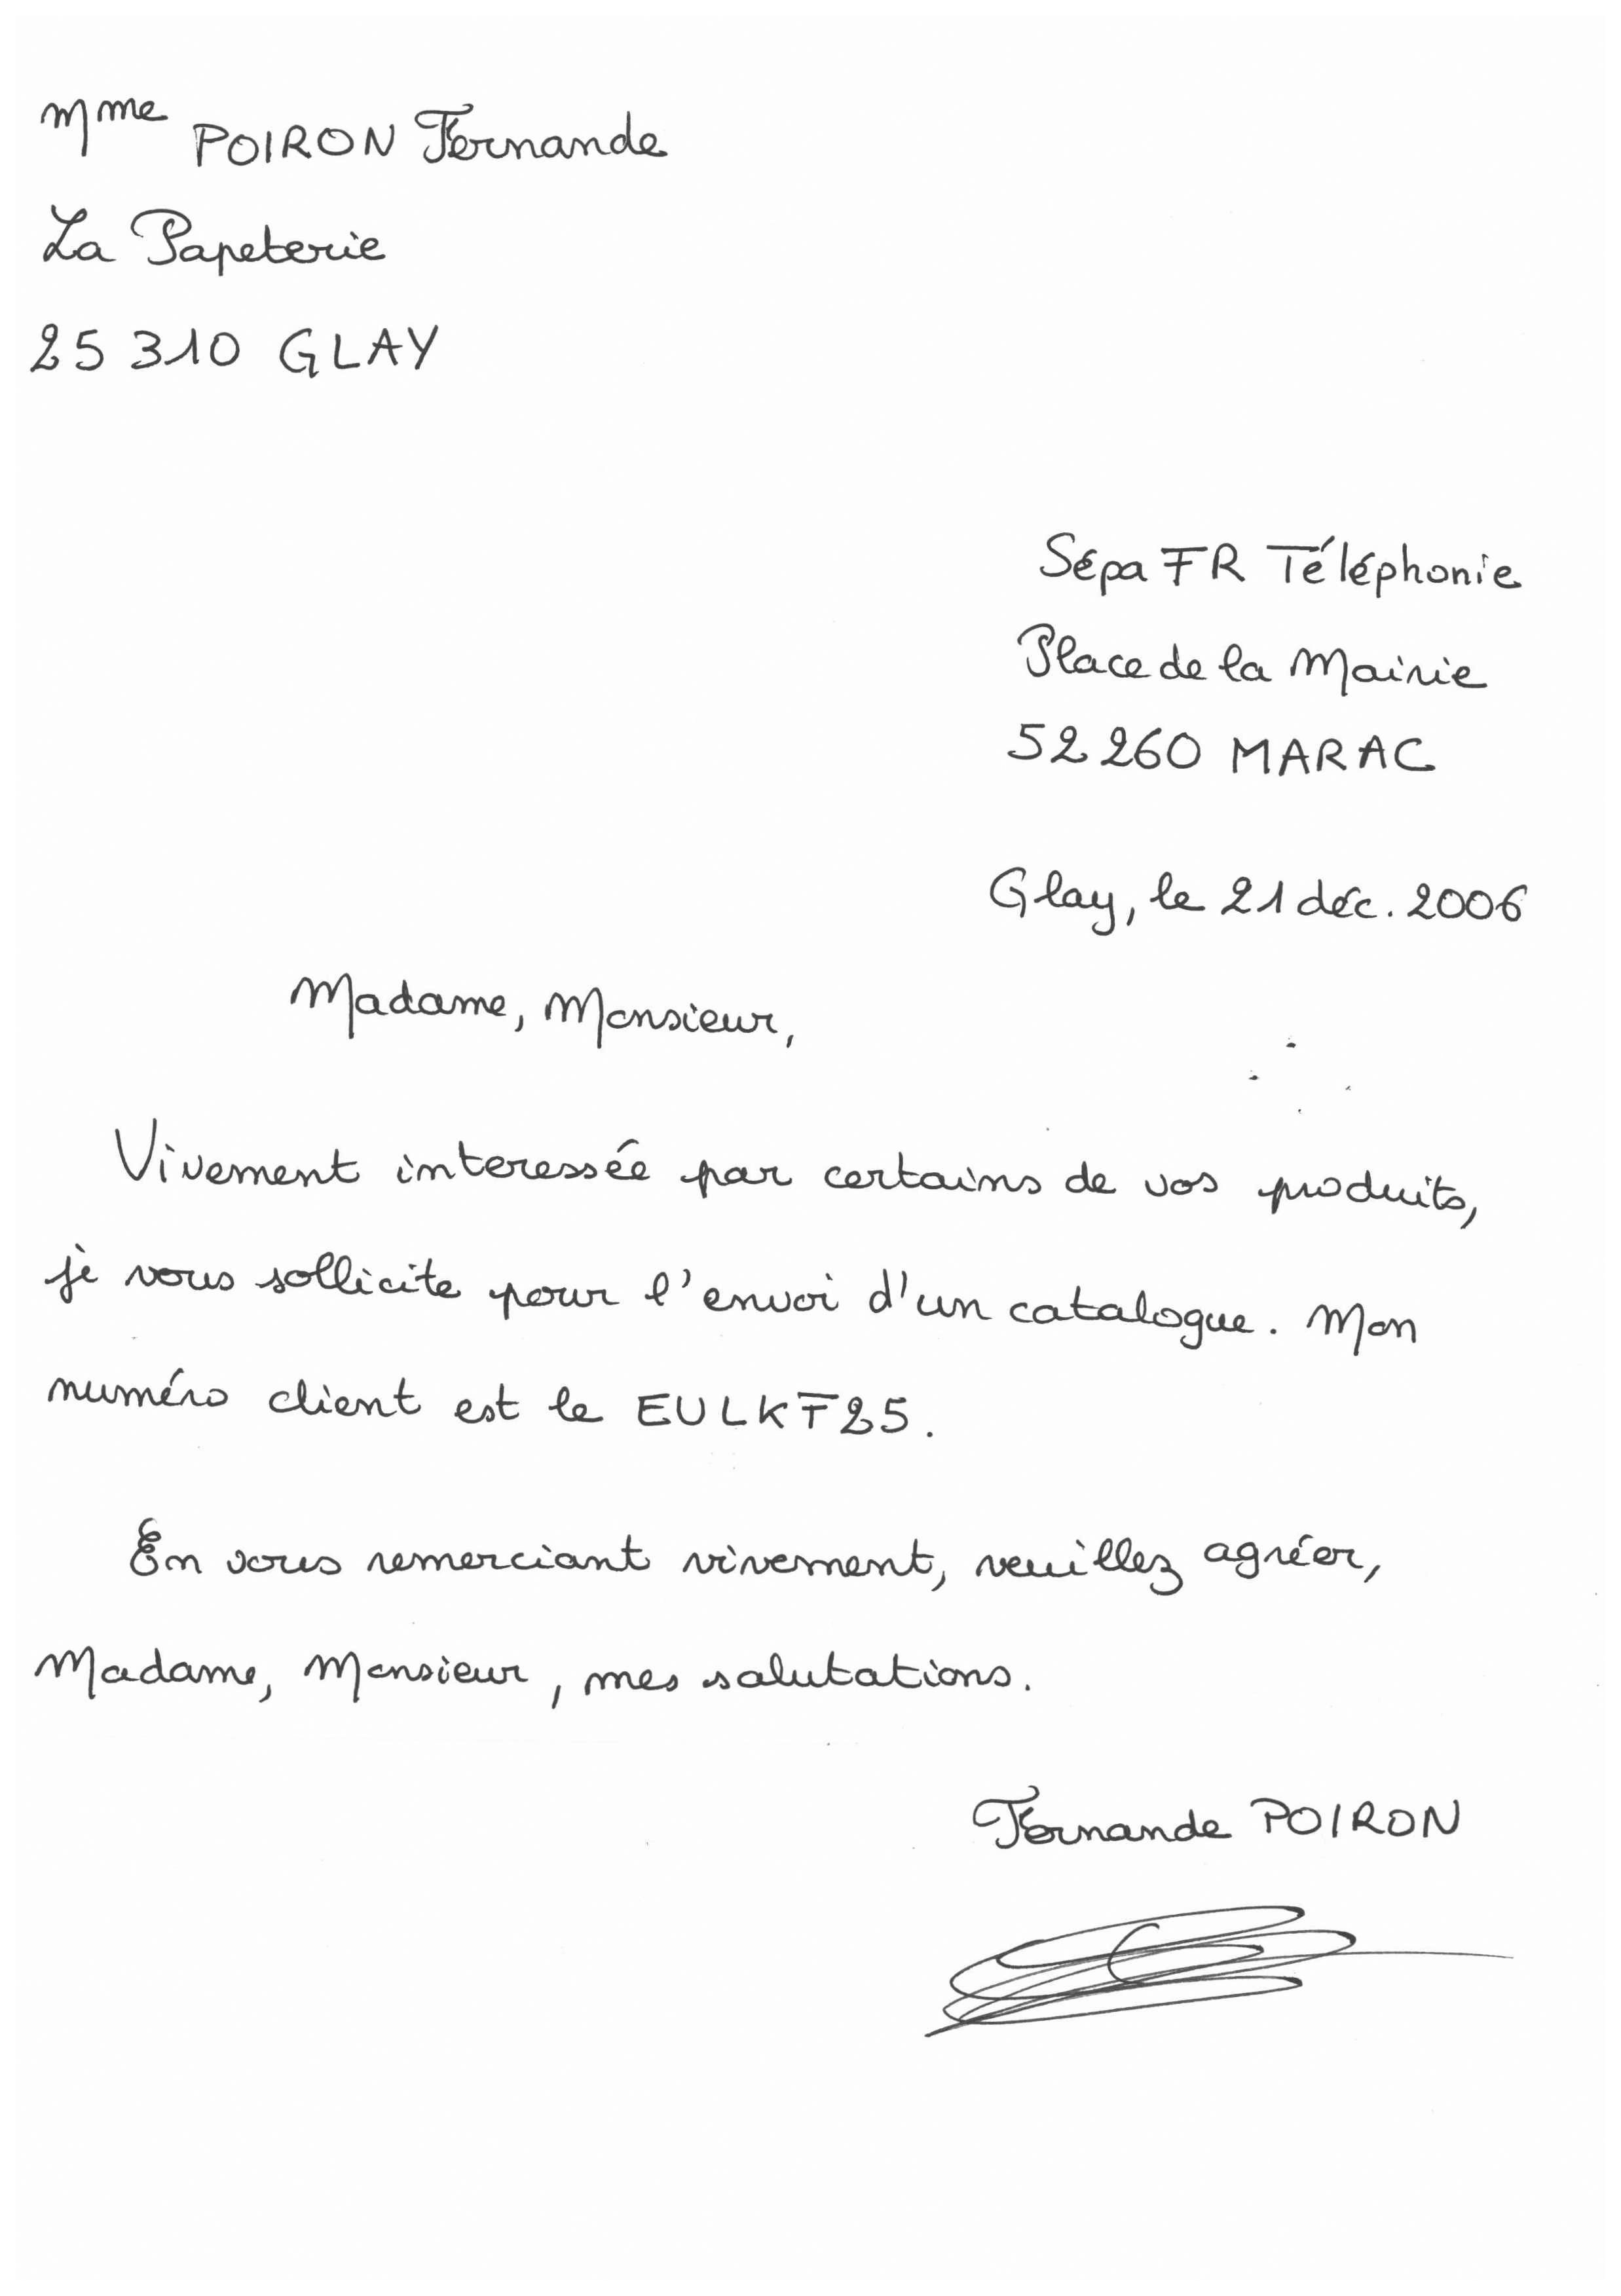 Mme POIRON Fernande
La Papeterie
25 310 GLAY
Sépa FR Téléphonie
Place de la Mairie
52 260 MARAC
Glay, le 21 déc. 2006
Madame, Monsieur,
Vivement interessée par certains de vos produits,
je vous sollicite pour l'envoi d'un catalogue. Mon
numéro client est le EULKF25.
En vous remerciant vivement, veuillez agréer,
Madame, Monsieur, mes salutations.
Fernande POIRON